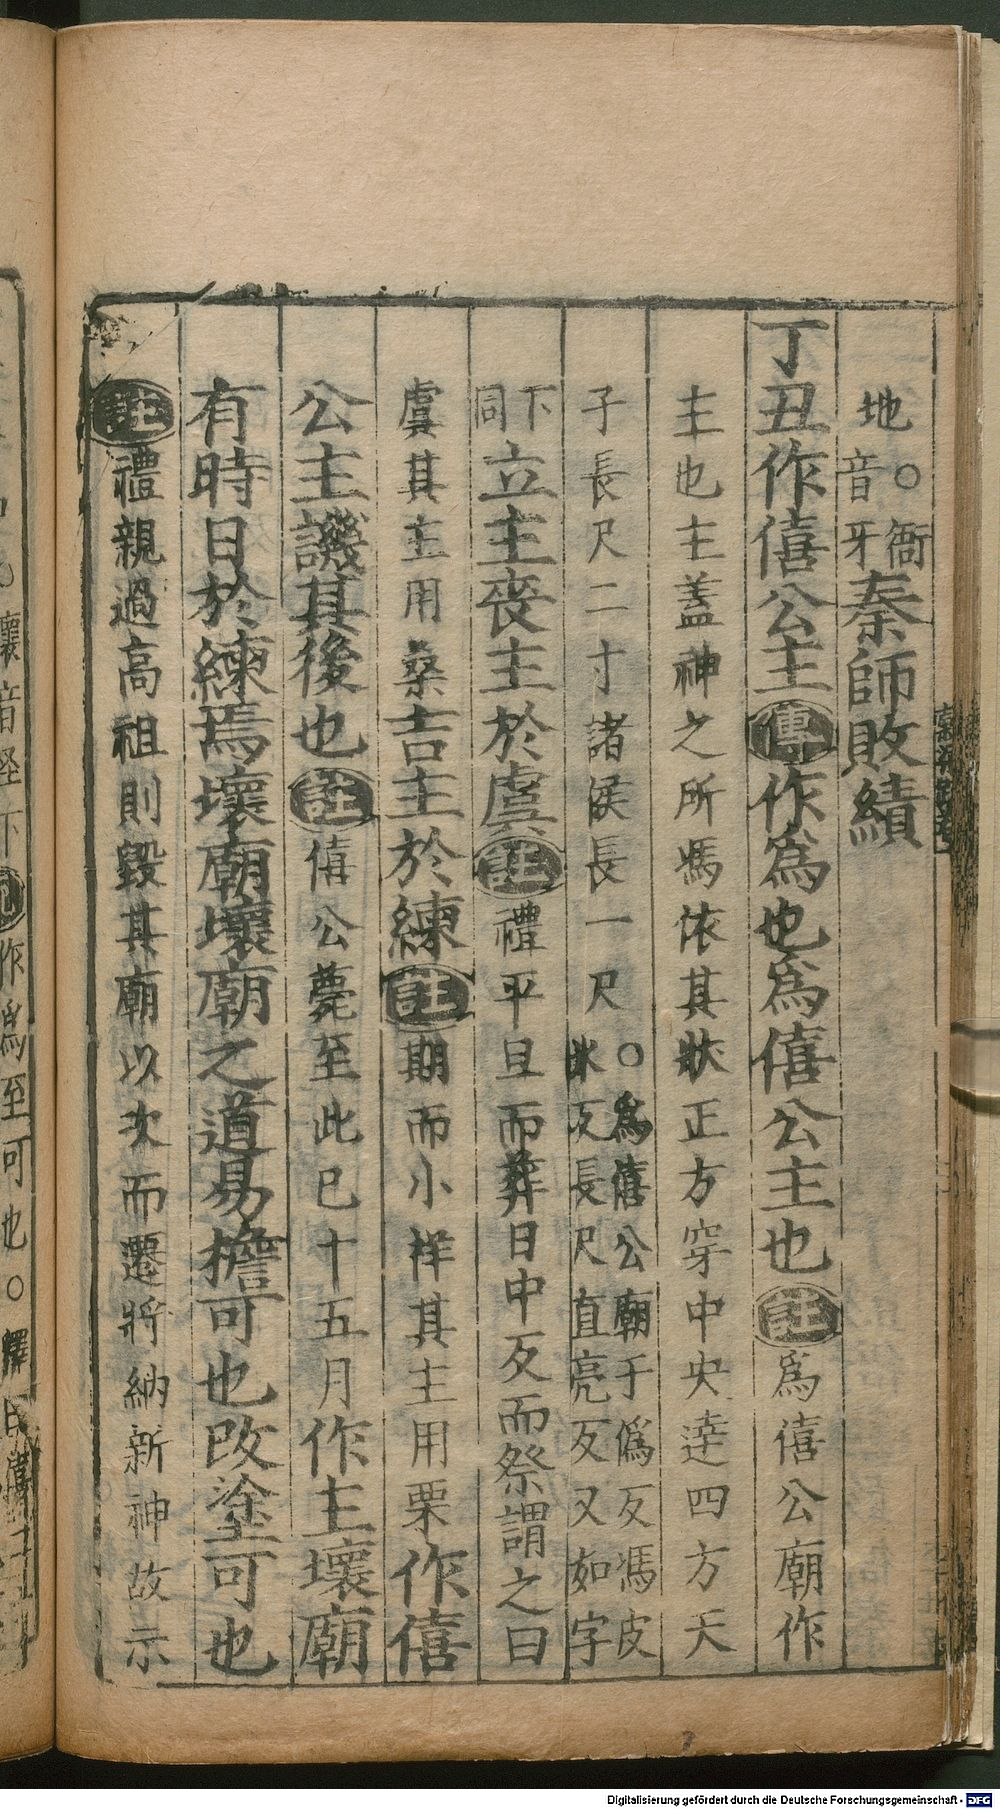 地○衙音牙秦師敗績
丁丑作僖公主傳作爲也爲僖公主也註爲僖公廟作
主也主蓋神之所馮依其狀正方穿中央達四方天
子長尺二寸諸侯長一尺○爲僖公廟于僞反馮皮冰反長尺直亮反又如字
下同立主喪主於虞註禮平旦而葬日中反而祭謂之曰
虞其主用桑吉主於練註期而小祥其主用栗作僖
公主譏其後也註僖公薨至此已十五月作主壞廟
有時日於練焉壞廟壞廟之道易檐可也改塗可也
註禮親過高祖則毀其廟以次而遷將納新神故示
Digitalisierung gefördert durch die Deutsche Forschungsgemeinschaft - DFG